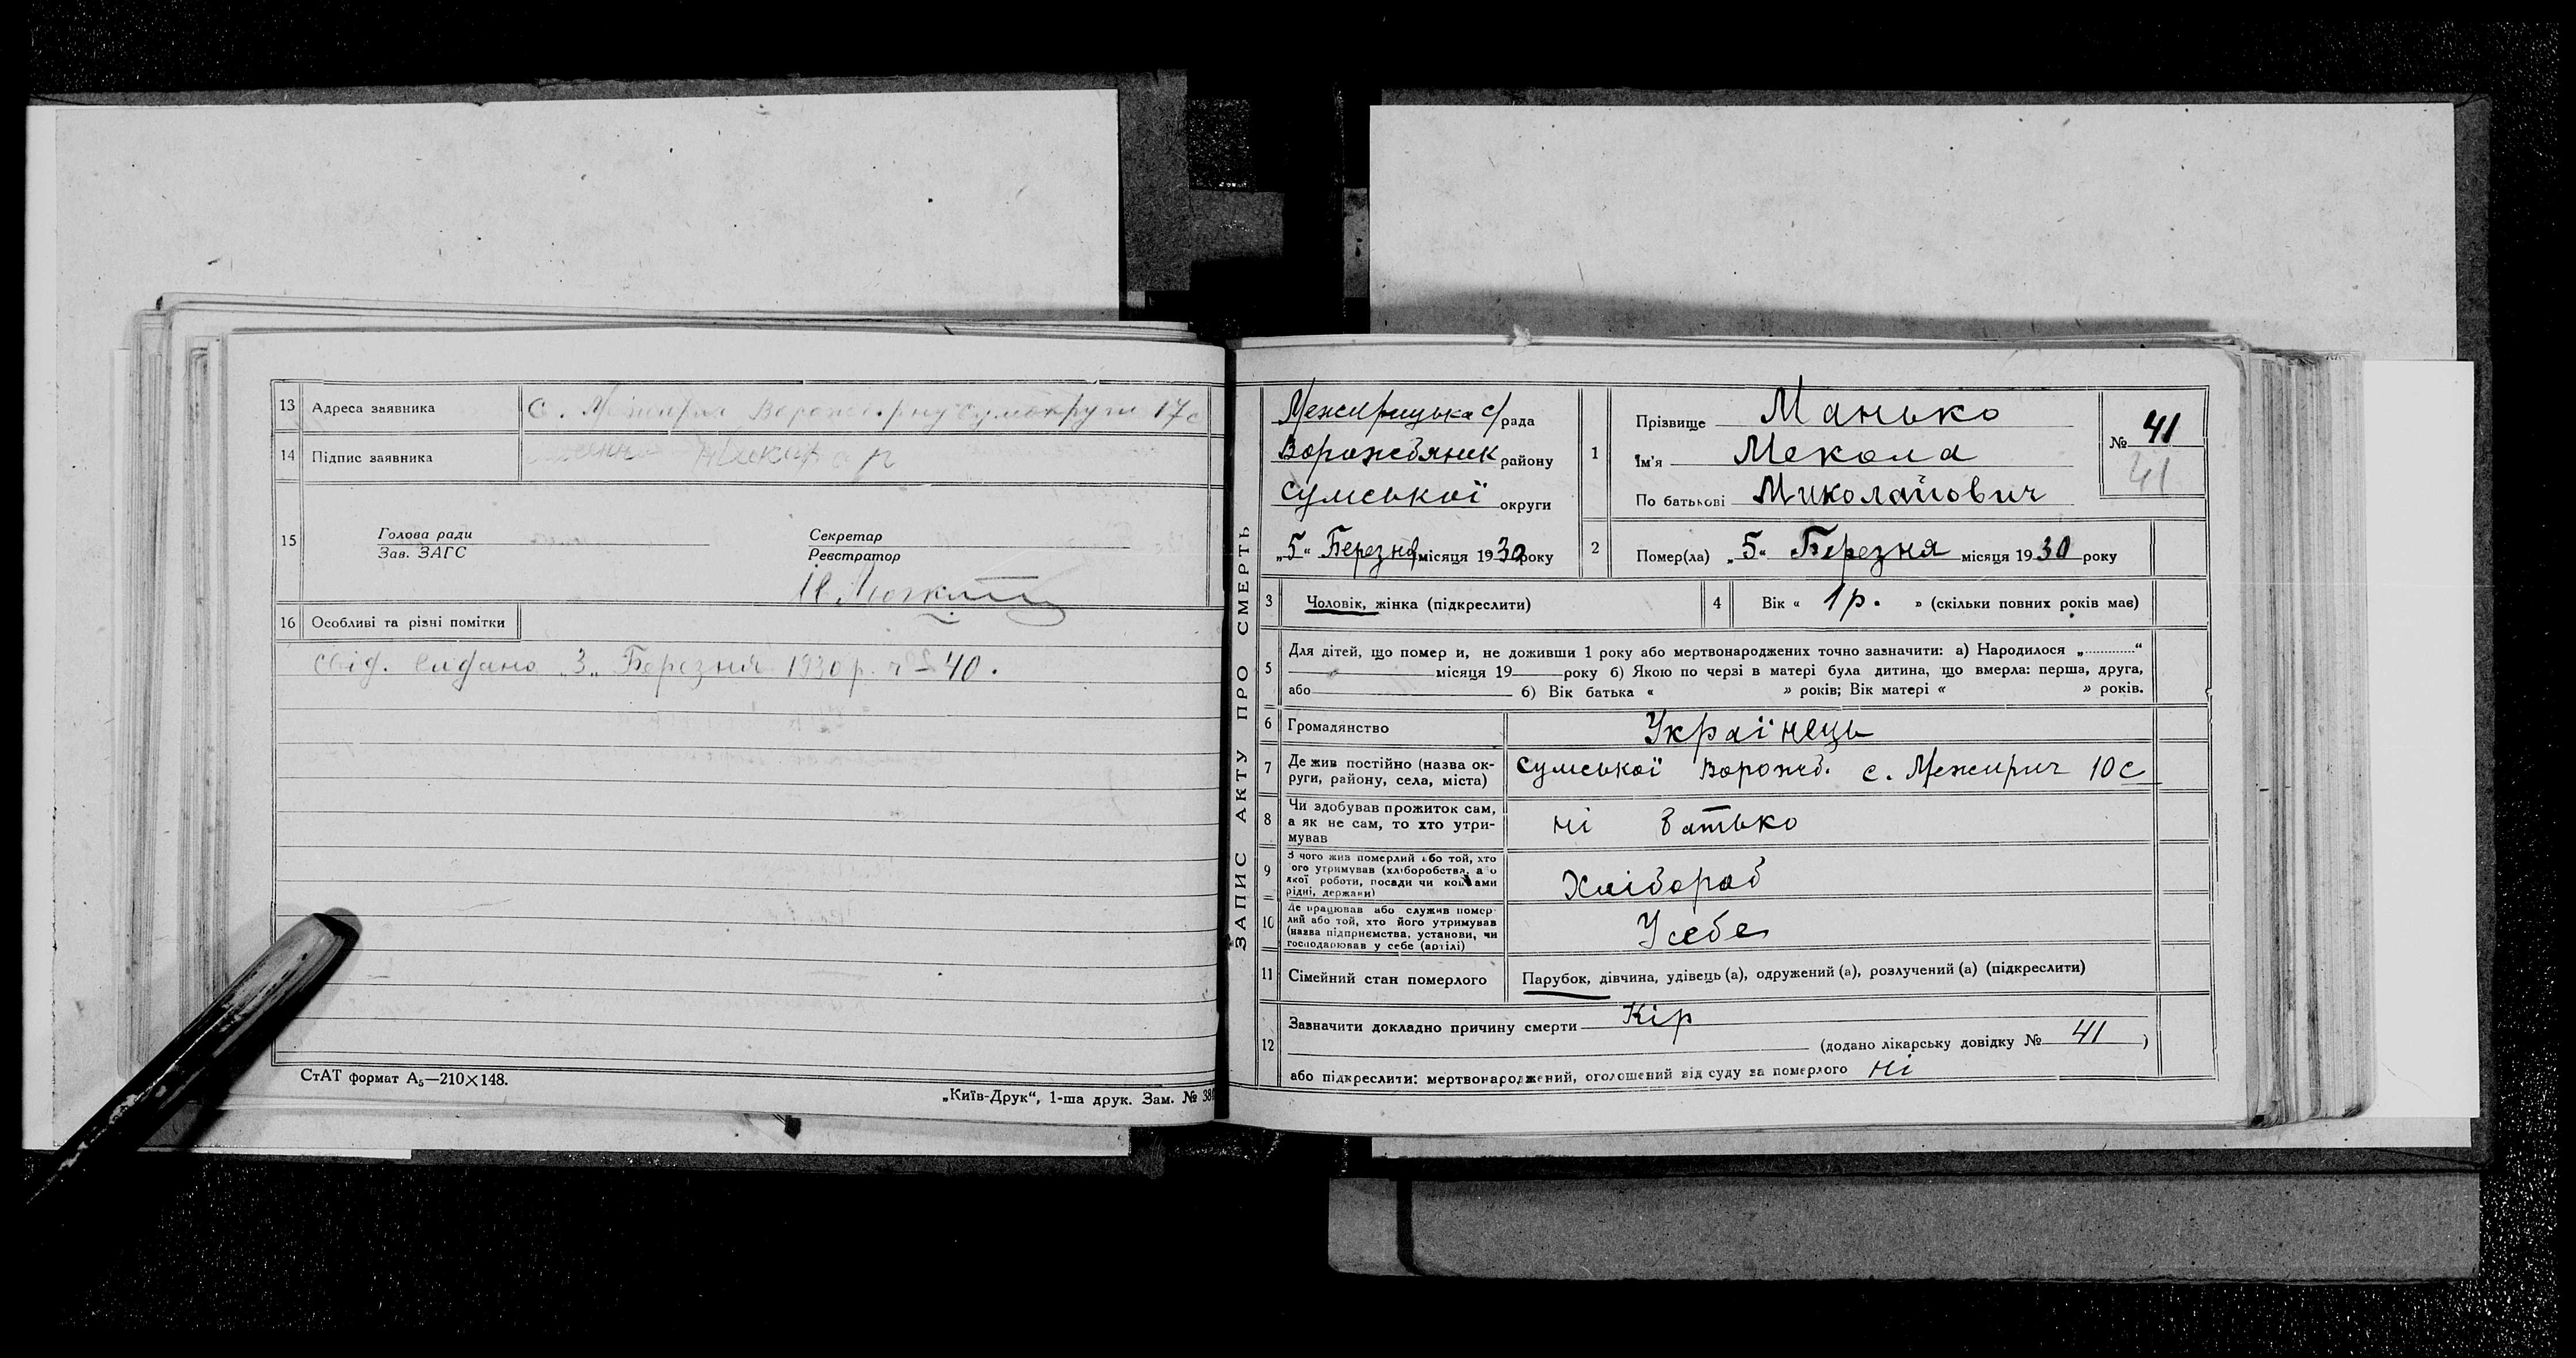 13 Адреса заявника С. Межирич Ворожб. р-ну Сумокруги 17с
14 Підпис заявника
15 Голова ради Секретар
Зав. ЗАГС Реєстратор
16 Особливі та різні помітки
Свід. видано „3„ Березня 1930 р. ч – 40.
СтАТ формат А₅—210×148.
„Київ-Друк“, 1-ша друк. Зам. № 38
ЗАПИС АКТУ ПРО СМЕРТЬ
Межирицька с/рада
Ворожбянськ району
Сумської округи
„5“ Березня місяця 1930 року
1 Прізвище Манько
Ім'я Мекола
По батькові Миколайович
№ 41
41
2 Помер(ла) „5“ Березня місяця 1930 року
3 Чоловік, жінка (підкреслити)
4 Вік « 1 р. » (скільки повних років має)
5 Для дітей, що помер и, не доживши 1 року або мертвонароджених точно зазначити: а) Народилося „............“
місяця 19 року б) Якою по черзі в матері була дитина, що вмерла: перша, друга,
або б) Вік батька « » років; Вік матері « » років.
6 Громадянство Українець
7 Де жив постійно (назва округи, району, села, міста) Сумської Ворожб. с. Межирич 10 с
8 Чи здобував прожиток сам,
а як не сам, то хто утри-
мував ні батько
9 З чого жив померлий або той, хто
ого утримував (хліборобства, або
якої роботи, посади чи коштами
рідні, держави) Хлібороб
10 Де працював або служив помер-
лий або той, хто його утримував
(назва підприємства, установи, чи
господарював у себе (артілі) У себе
11 Сімейний стан померлого Парубок, дівчина, удівець (а), одружений (а), розлучений (а) (підкреслити)
12 Зазначити докладно причину смерти Кір
(додано лікарську довідку № 41 )
або підкреслити: мертвонароджений, оголошений від суду за померлого ні